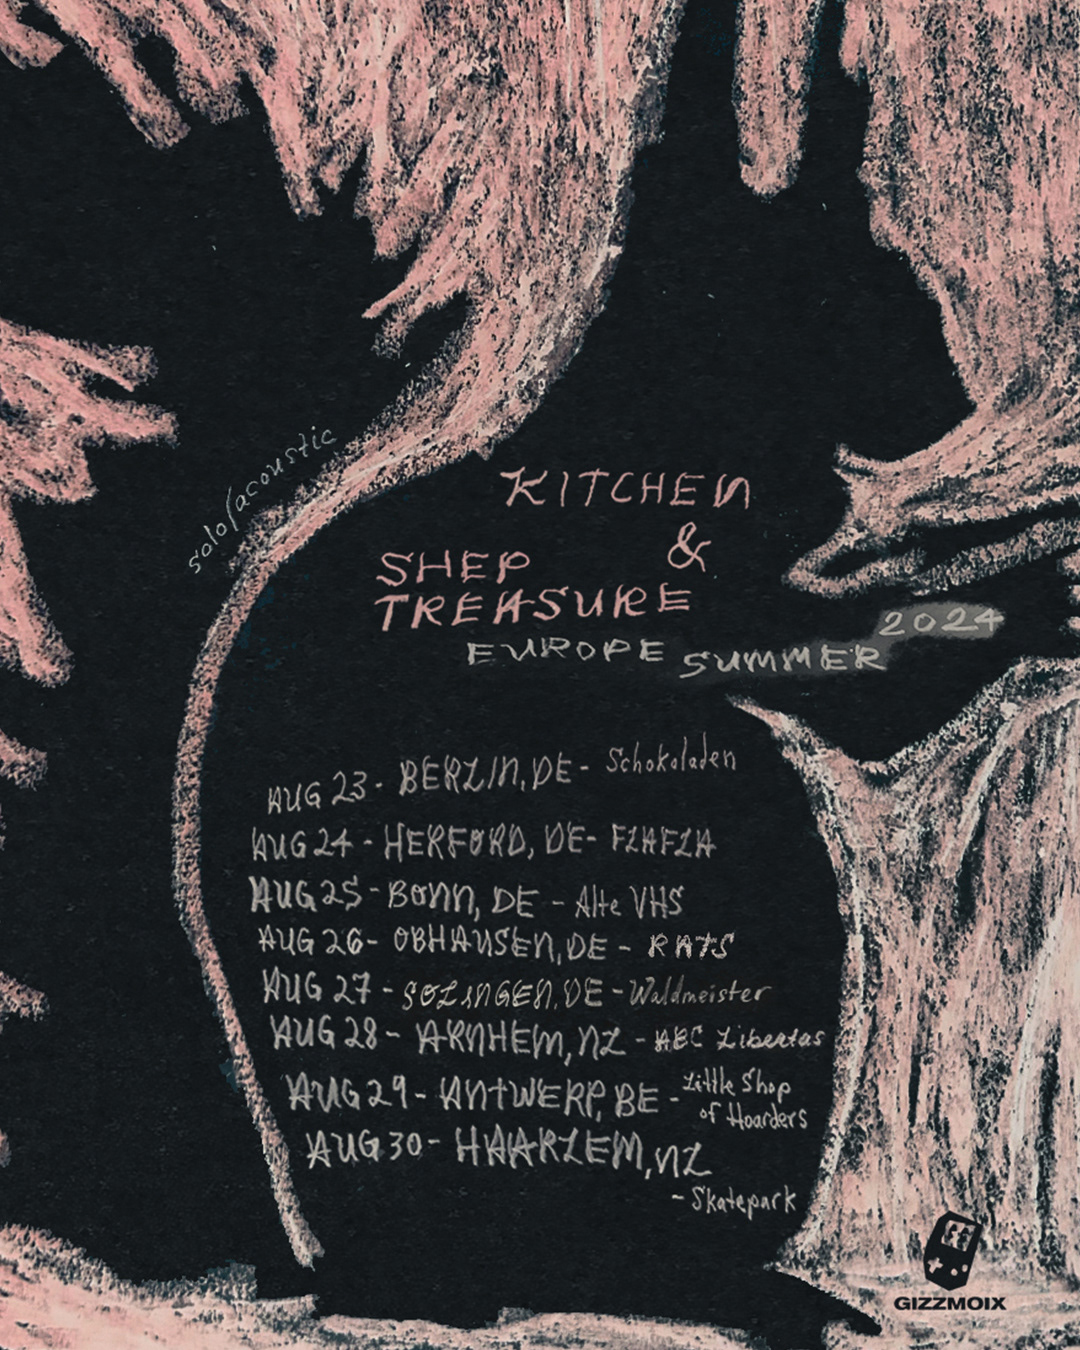 solo/acoustic
KITCHEN
&
SHEP
TREASURE
EUROPE SUMMER 2024
AUG 23 - BERLIN, DE - Schokoladen
AUG 24 - HERFORD, DE - FLAFLA
AUG 25 - BONN, DE - Alte VHS
AUG 26 - OBHAUSEN, DE - RATS
AUG 27 - SOLINGEN, DE - Waldmeister
AUG 28 - ARNHEM, NL - ABC Libertas
AUG 29 - ANTWERP, BE - Little Shop
of Hoarders
AUG 30 - HAARLEM, NL
- Skatepark
GIZZMOIX